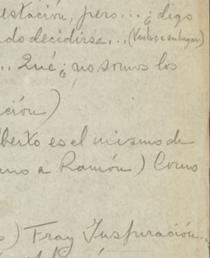 estación, pero... ¿digo
do decidirse...
... Qué ¿no somos los
ción)
berto es el mismo de
a Ramón) Como
Fray Inspiración...